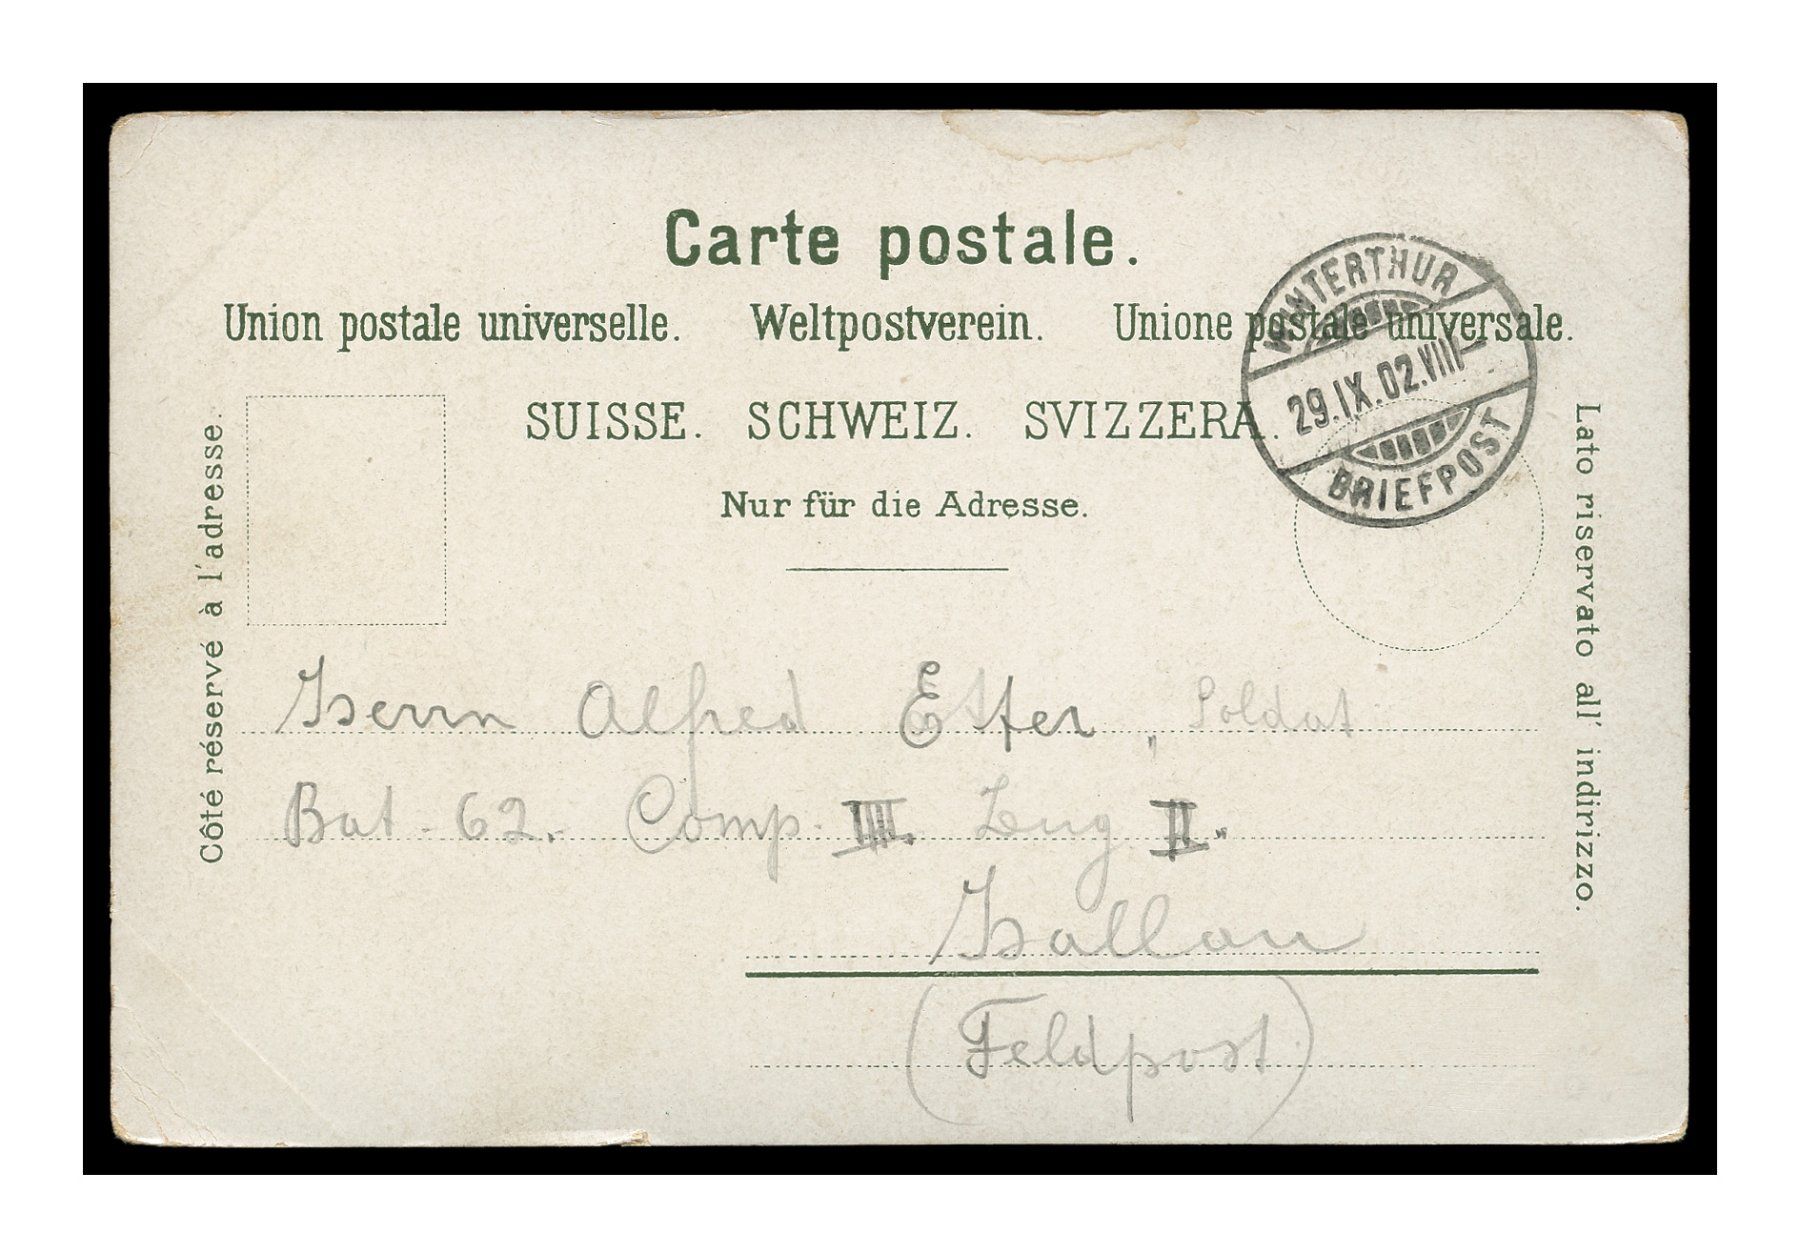 Carte postale.
Union postale universelle. Weltpostverein. Unione postale universale.
SUISSE. SCHWEIZ. SVIZZERA.
Nur für die Adresse.
Côté réservé à l'adresse.
Lato riservato all' indirizzo.
WINTERTHUR
29.IX.02.VIII–
BRIEFPOST
Herrn Alfred Etter, Soldat
Bat. 62. Comp. IIII. Zug II.
Hallau
(Feldpost)